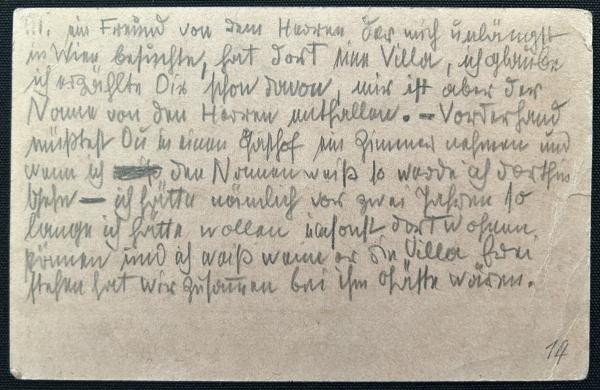 III. ein Freund von dem Herren der mich unlängst
in Wien besuchte, hat dort eine Villa, ich glaube
ich erzählte Dir schon davon, mir ist aber der
Name von dem Herren entfallen. – Vorderhand
müßtest Du in einen Gasthof ein Zimmer nehmen und
wenn ich den Namen weiß so werde ich dorthin
– ich hätte nämlich vor zwei Jahren so
lange ich hätte wollen umsonst dort wohnen
können und ich weiß wenn er die Villa frei
stehen hat wir zusammen bei ihm Gäste wären.
14